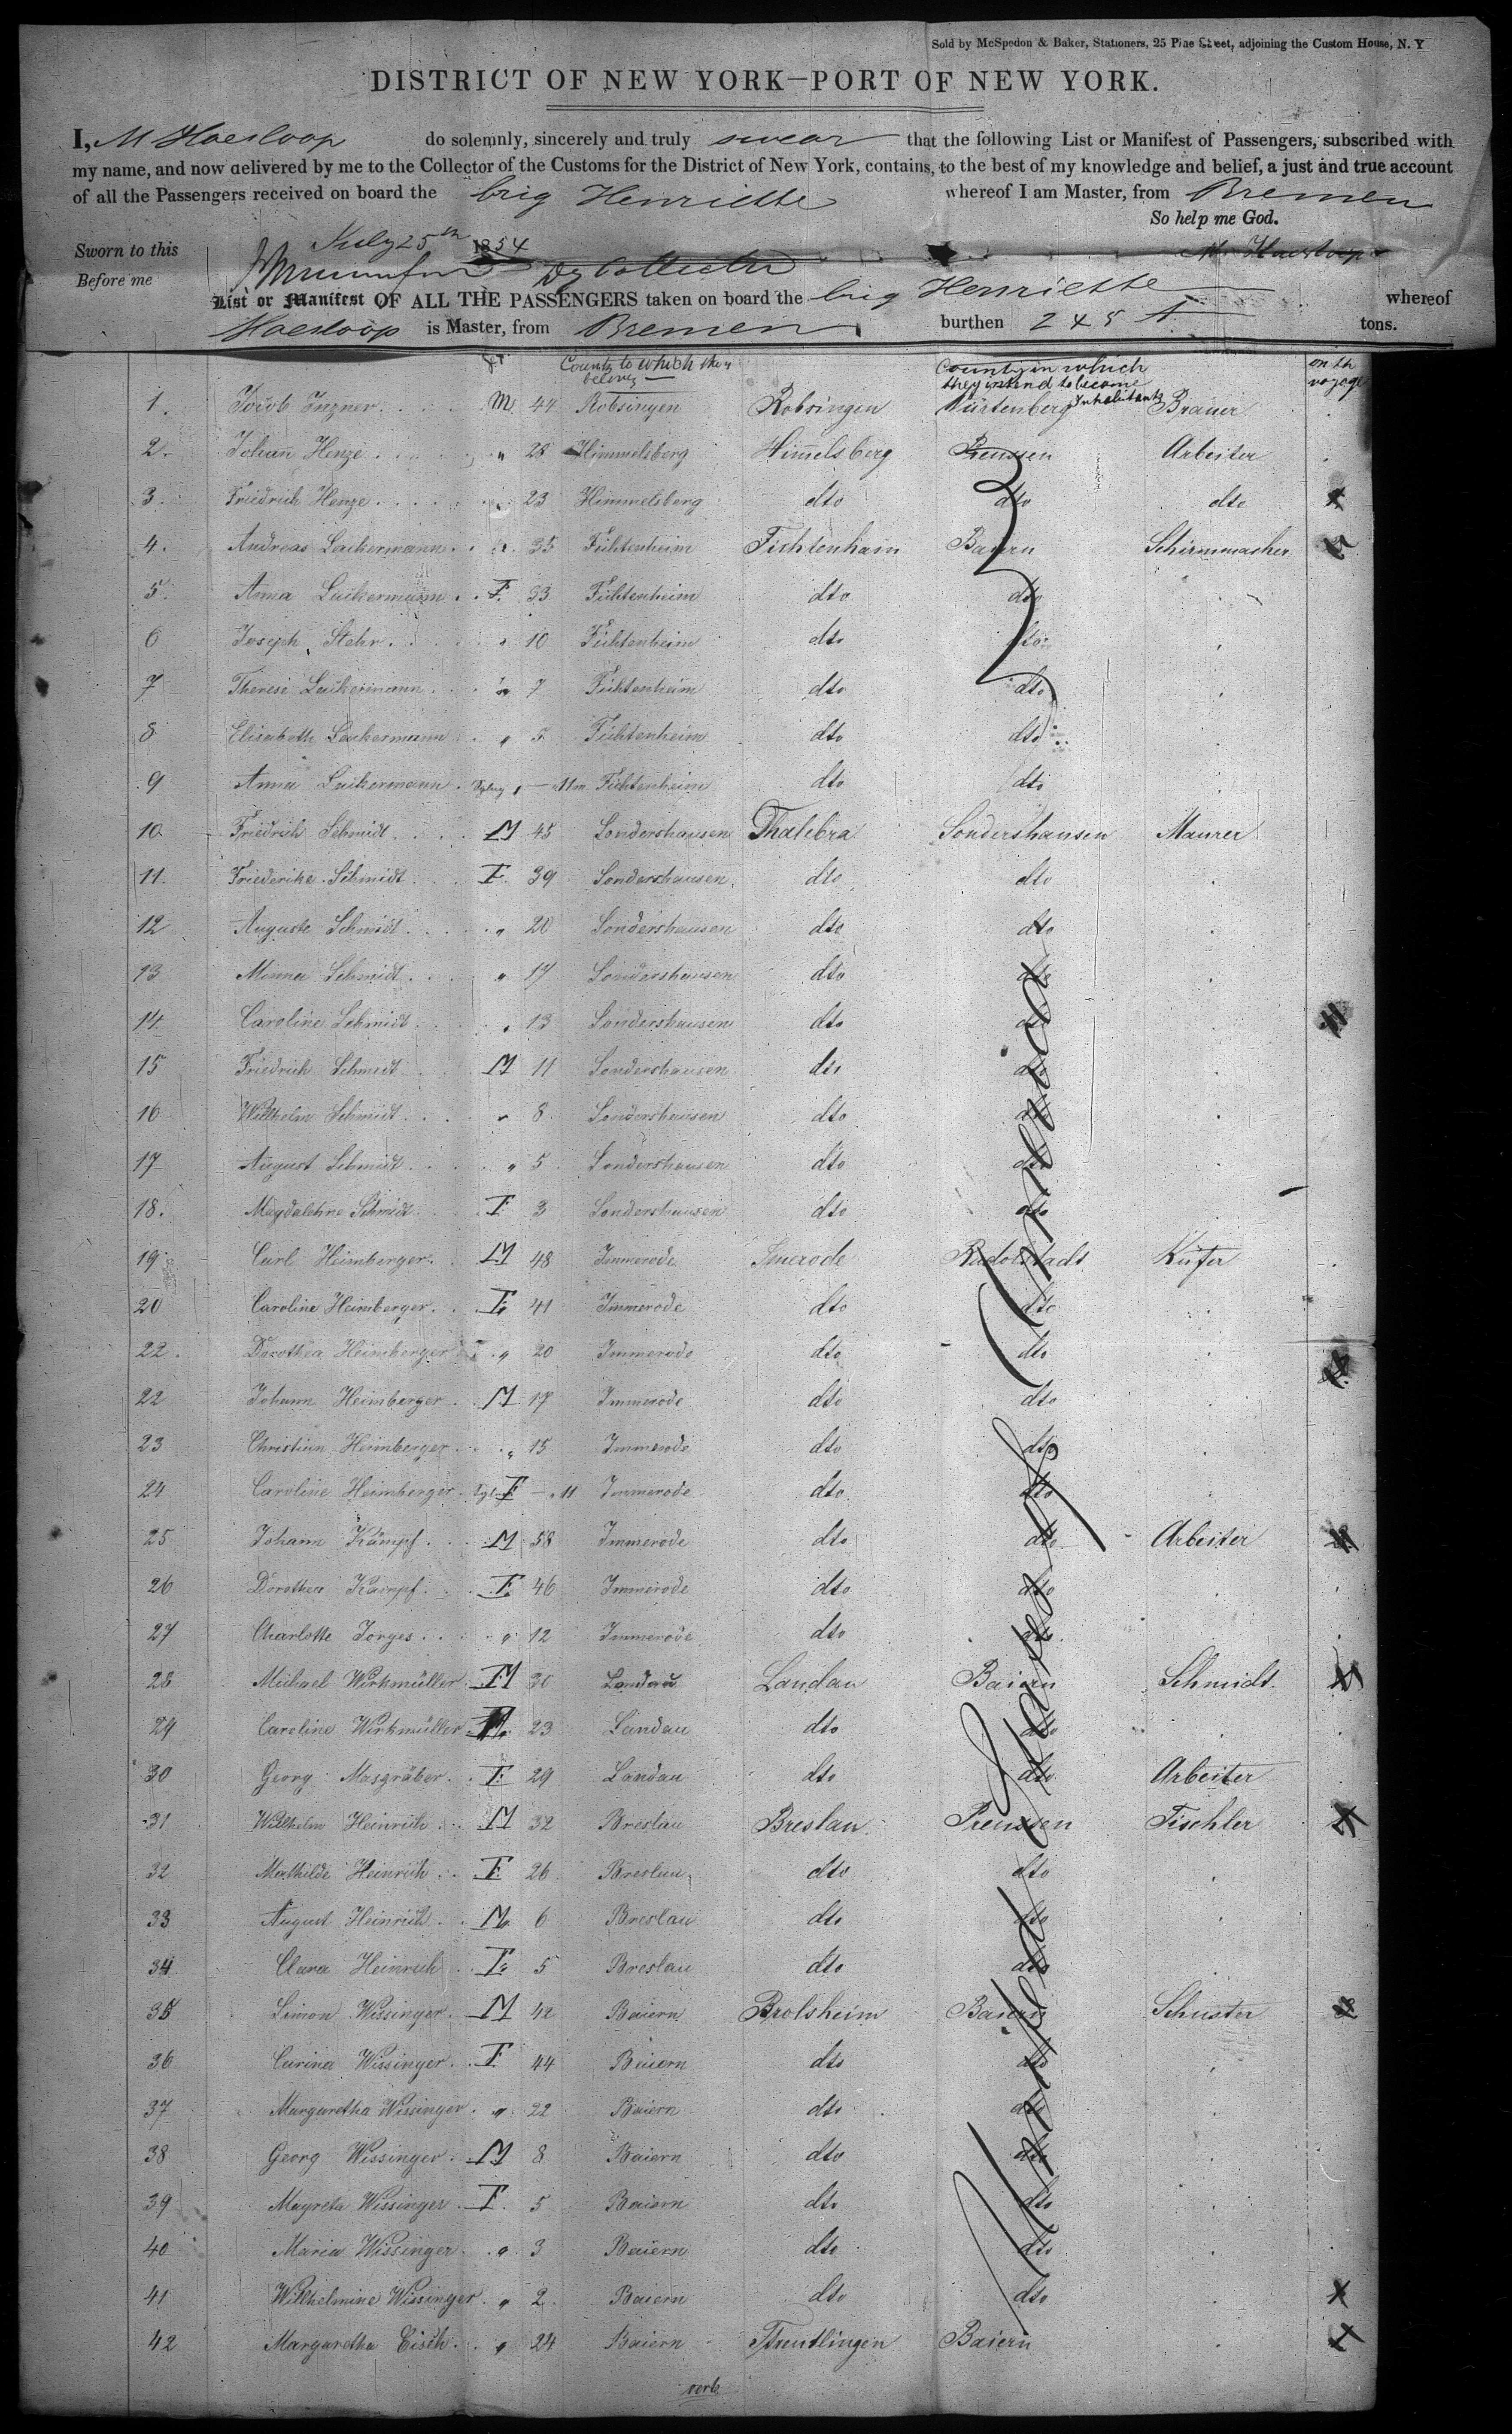 Sold by McSpedon & Baker, Stationers, 25 Pine Street, adjoining the Custom House, N. Y
DISTRICT OF NEW YORK—PORT OF NEW YORK.
I, M Haesloop do solemnly, sincerely and truly swear that the following List or Manifest of Passengers, subscribed with
my name, and now delivered by me to the Collector of the Customs for the District of New York, contains, to the best of my knowledge and belief, a just and true account
of all the Passengers received on board the brig Henriette whereof I am Master, from Bremen
So help me God.
Sworn to this July 25th 1854 M. Haesloop
Before me Dy Collector
List or Manifest OF ALL THE PASSENGERS taken on board the brig Henriette whereof
Haesloop is Master, from Bremen burthen 245 t tons.
County to which they belong — Country in which they intend to become Inhabitants on the voyage
1. Jacob M 44 Robsingen Robsingen Würtenberg Brauer
2. Johan Henze " 28 Himmelsberg Himmelsberg Preussen Arbeiter
3. Friedrich Henze " 23 Himmelsberg dto dto dto
4. Andreas Leikermann " 35 Fichtenheim Fichtenhain Baiern Schirmmacher
5. Anna Leikermann F 33 Fichtenheim dto dto
6 Joseph Stehr " 10 Fichtenheim dto dto
7 Therese Leikermann " 7 Fichtenheim dto dto
8 Elisabeth Leikermann " 5 Fichtenheim dto dto
9 Anna Leikermann 11m Fichtenheim dto dto
10 Friedrich Schmidt M 45 Sondershausen Thalebra Sondershausen Maurer
11. Friederike Schmidt F. 39 Sondershausen dto dto
12 Auguste Schmidt " 20 Sondershausen dto dto
13 Minna Schmidt " 17 Sondershausen dto dto
14 Caroline Schmidt " 13 Sondershausen dto dto
15 Friedrich Schmidt M 11 Sondershausen dto dto
16 Wilhelm Schmidt " 8 Sondershausen dto dto
17 August Schmidt " 5 Sondershausen dto dto
18. Magdalehne Schmidt F 3 Sondershausen dto dto
19 Carl Heimberger M 48 Immerode Imerode Rudolstadt Küfer
20 Caroline Heimberger F 41 Immerode dto dto
22. Dorothea Heimberger " 20 Immerode dto dto
22 Johann Heimberger M 17 Immerode dto dto
23 Christian Heimberger " 15 Immerode dto dto
24 Caroline Heimberger F 11 Immerode dto dto
25 Johann Kämpf M 58 Immerode dto dto Arbeiter
26 Dorothea Kämpf F 46 Immerode dto dto
27 Charlotte Jorges " 12 Immerode dto dto
28 Michael Wirkmüller M 30 Landau Landau Baiern Schmidt
29 Caroline Wirkmüller 23 Landau dto dto
30 Georg Masgräber F 29 Landau dto dto Arbeiter
31 Wilhelm Heinrich M 32 Breslau Breslau Preussen Tischler
32 Mathilde Heinrich F 26 Breslau dto dto
33 August Heinrich M 6 Breslau dto dto
34 Clara Heinrich F 5 Breslau dto dto
35 Simon Wissinger M 42 Baiern Brolsheim Baiern Schuster
36 Carina Wissinger F 44 Baiern dto dto
37 Margaretha Wissinger " 22 Baiern dto dto
38 Georg Wissinger M 8 Baiern dto dto
39 Magreta Wissinger F 5 Baiern dto dto
40 Maria Wissinger " 3 Baiern dto dto
41 Wilhelmine Wissinger " 2 Baiern dto dto
42 Margaretha Eisch " 24 Baiern Baiern
United States of America